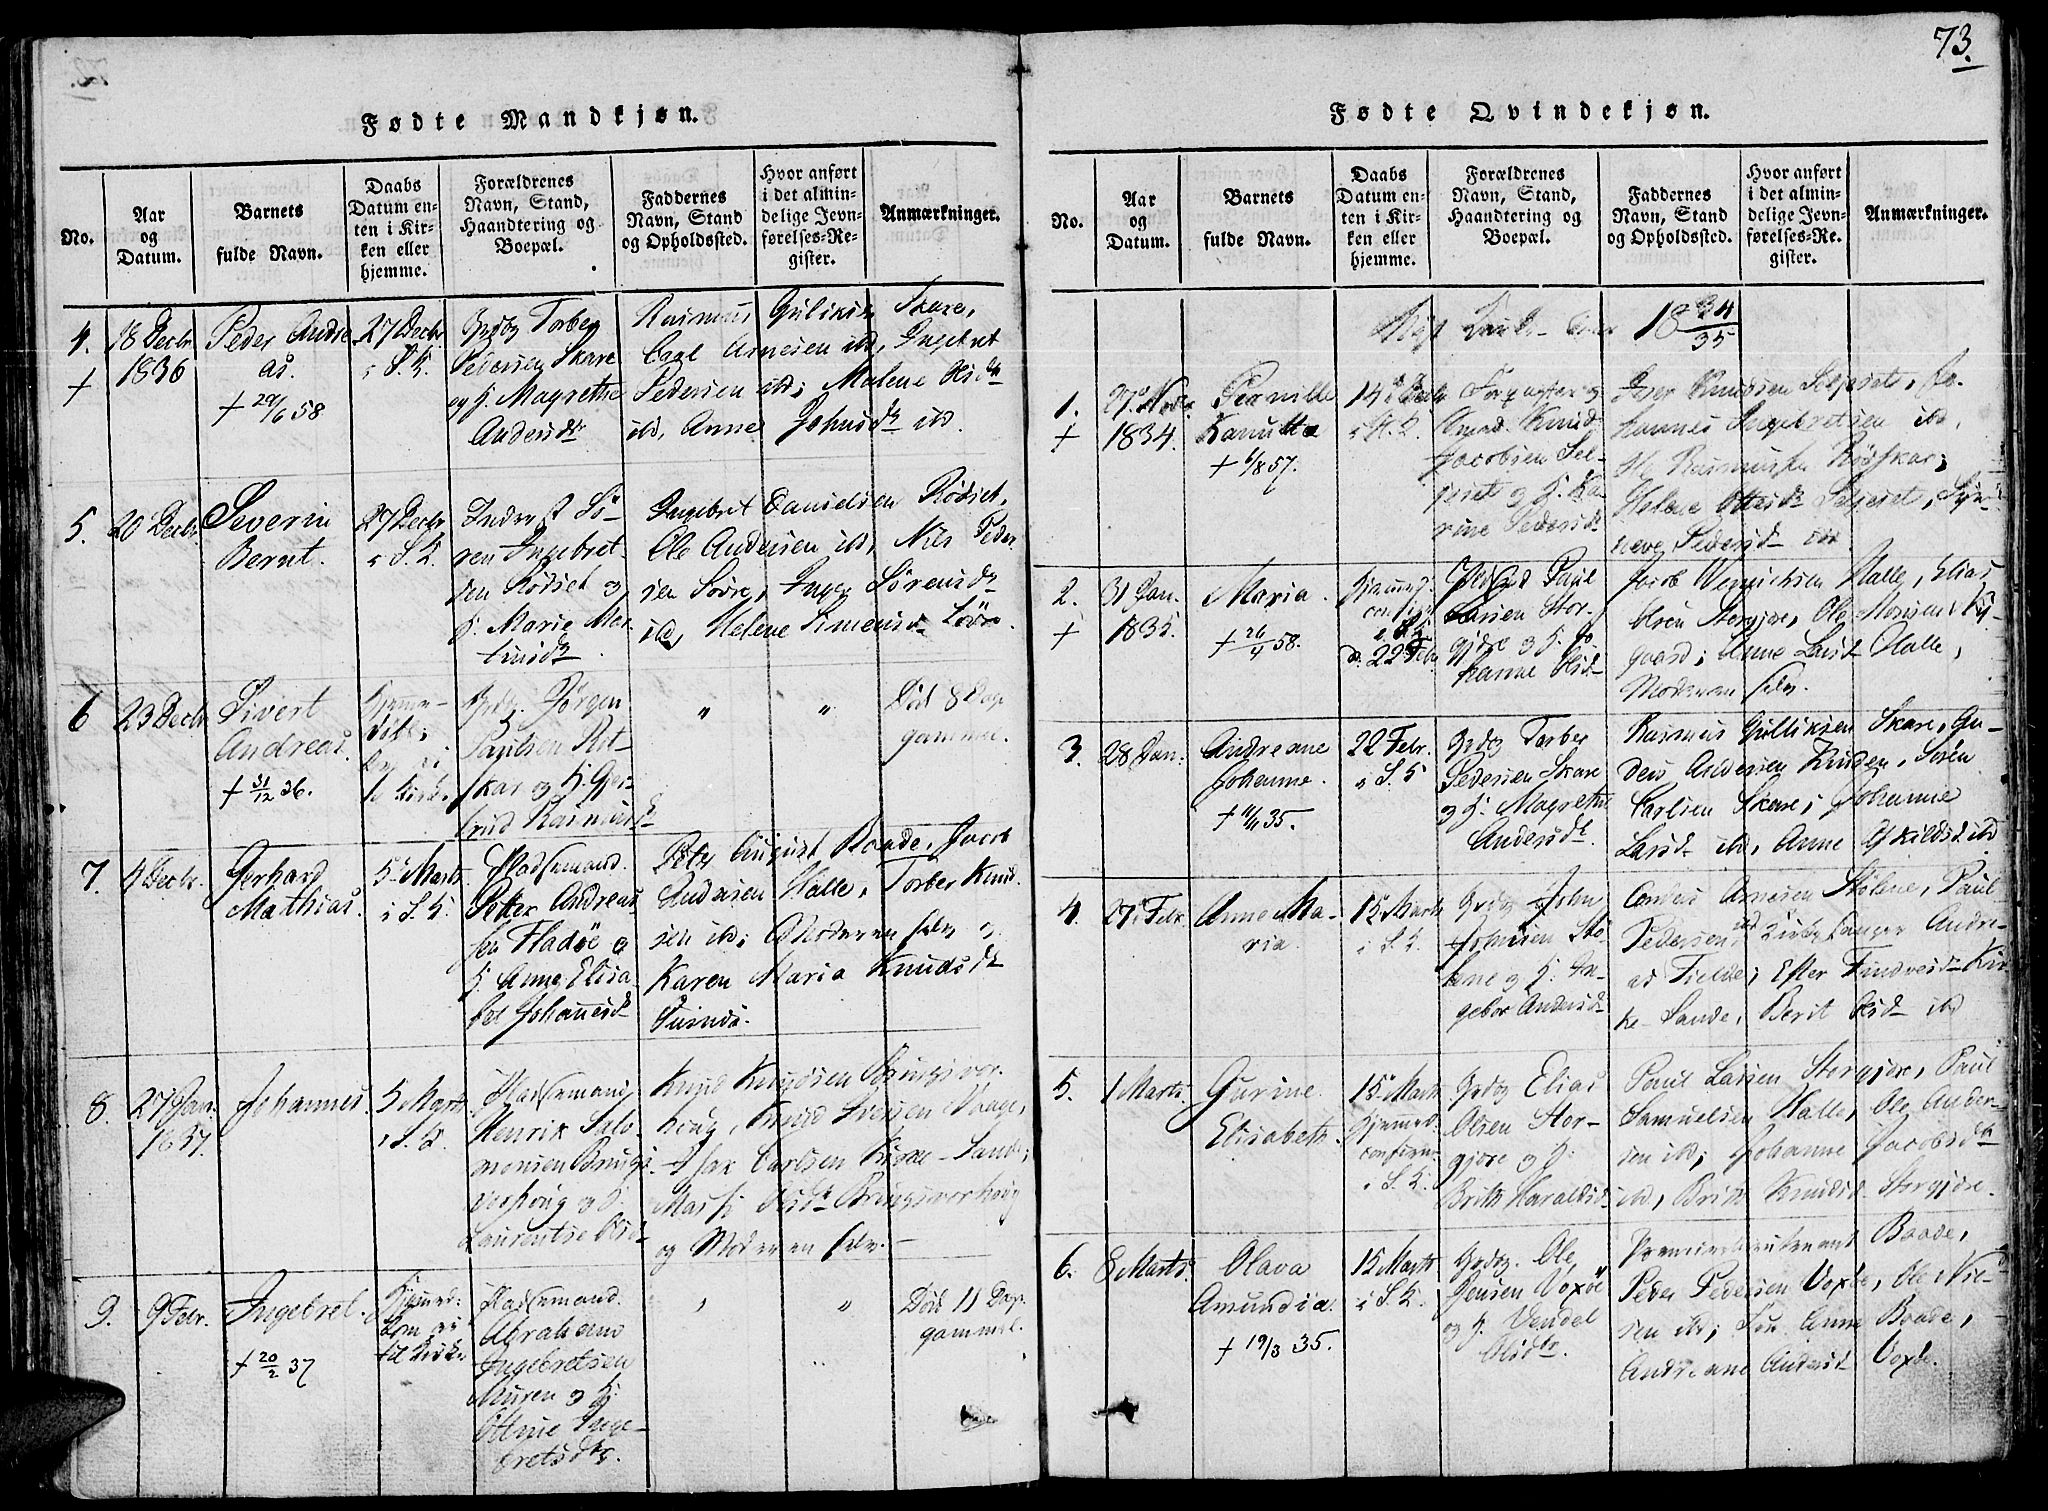 73.
Fødte Mandkjøn.
No.
Aar
og
Datum.
Barnets
fulde Navn.
Daabs
Datum en-
ten i Kir-
ken eller
hjemme.
Forældrenes
Navn, Stand,
Haandtering og
Boepæl.
Faddernes
Navn, Stand
og Opholdssted.
Hvor anført
i det almin-
delige Jevn-
førelses-Re-
gister.
Anmærkninger.
4.
+
18 Decbr
1836
Peder Andre
as.
+ 29/6 58
27 Decbr
i S. K.
Grdbg Torber
Pedersen Skare
og H. Magrethe
Andersdr
Rasmus Guliksen Skare,
Carl Arnesen ibd, Ingebret
Pedersen ibd; Malene Olsdr
ibd, Anne Johnsdr ibd.
5.
20 Decbr
Severin
Bernt.
27 Decbr
i S. K.
Inderst Sö-
ren Ingebret-
sen Rödset og
H. Marie Mor-
tinsdr
Ingebret Danielsen Rödset,
Ole Andersen ibd, Nils Peder-
sen Sövre, Inger Sörensdr
ibd, Helene Simensdr Sövre.
6
23 Decbr
Sivert
Andreas.
+ 31/12 36.
Hjemme-
döbt;
til Kirke
Grdbg. Jörgen
Paulsen Röt-
skar og H. Ger-
trud Rasmusd
"
"
Död 8 Dage
gammel.
7.
4 Decbr.
Gerhard
Mathias.
5 Marts
i S. K.
Pladsemand
Peter Andreas
sen Fladöe og
H. Anne Elisa-
bet Johannesdr
Peter August Baade, Jacob
Andersen Halle, Torber Knud-
sen ibd; Moderen selv og
Karen Maria Knudsdr
8.
27 Jan.
1837.
Johannes
5 Marts
i S. K.
Pladsemand
Henrik Salo-
monsen Brings-
vorhoug og H.
Laurentse Olsd
Knud Knudsen Bringsvor-
houg, Knud Iversen Waage,
Isak Carlsen Kirke-Sande;
Marthe Olsdr Bringsvorhoug
og Moderen selv.
9.
9 Febr.
Ingebret.
+ 20/2 37
Hjemmed:
Kom ei
til Kirke
Pladsemand.
Abraham
Ingebretsen
Muren og H.
Olline Inge-
bretsdr.
"
"
Död 11 Dage
gammel.
Fødte Qvindekjøn.
No.
Aar
og
Datum.
Barnets
fulde Navn.
Daabs
Datum en-
ten i Kir-
ken eller
hjemme.
Forældrenes
Navn, Stand,
Haandtering og
Boepæl.
Faddernes
Navn, Stand
og Opholdssted.
Hvor anført
i det almin-
delige Jevn-
førelses-Re-
gister.
Anmærkninger.
1834/35
1.
+
27. Novbr
1834.
Pernille
Kanutta
+ 6/8 57.
14 Decbr
i S. K.
Forpagter og
Knud
Jacobsen Sel-
jeset og H. Ka-
rine Pedersdr
Peer Knudsen Seljeset, Jo-
hannes Ingebretsen ibd,
Ole Rasmussen Rödskar;
Helene Ottesdr Seljeset, Syn-
neve Pedersdr ibd
2.
+
31 Jan.
1835.
Maria.
+ 26/4 58.
Hjemmed.
confirm.
i S. K.
d. 22 Febr
Grdbg Paul
Larsen Stor-
gjöre og H. Jo-
hanne Olsdr
Jacob Wernichsen Halle, Elias
Olsen Storgjöre, Ole Monsen Ny-
gaard; Anne Larsdr Halle,
Moderen selv.
3.
28 Jan.
Andreane
Johanne.
+ 11/11 35.
22 Febr.
i S. K
Grdbg Torber
Pedersen Skare
og H. Magrethe
Andersdr.
Rasmus Gulliksen Skare, An-
ders Andersen Knuden, Sören
Carlsen Skare; Johanne
Larsdr ibd, Anne Eskildsd ibd
4.
27 Febr
Anne Ma-
ria.
15 Marts
i S. K.
Grdbg John
Johnsen Stö-
lene og H. In-
gebor Andersdr
Anders Arnesen Stölene, Paul
Pedersen ibd, Kirkesanger Andre-
as Fielde; Ester Findvesdr Kir-
ke-Sande, Berit Olsdr ibd
5.
1 Marts.
Gurine
Elisabeth.
15 Marts
Hjemmed.
confirm.
i S. K.
Grdbg Elias
Olsen Stor-
gjöre og H.
Brith Haraldsd
Paul Larsen Storgjöre, Paul
Samuelsen Halle, Ole Ander-
sen ibd; Johanne Jacobsdr
ibd, Brith Knudsd Storgjöre.
6.
8 Marts.
Olava
Amundia.
+ 19/3 35.
15 Marts
i S. K.
Grdbg. Ole
Jensen Voxöe
og H. Vendel
Olsdr.
Premierlieutenant Baade,
Peder Pedersen Voxöe, Ole Niel-
sen ibd; Frue Anne Baade,
Andreane Andersdr Voxöe.